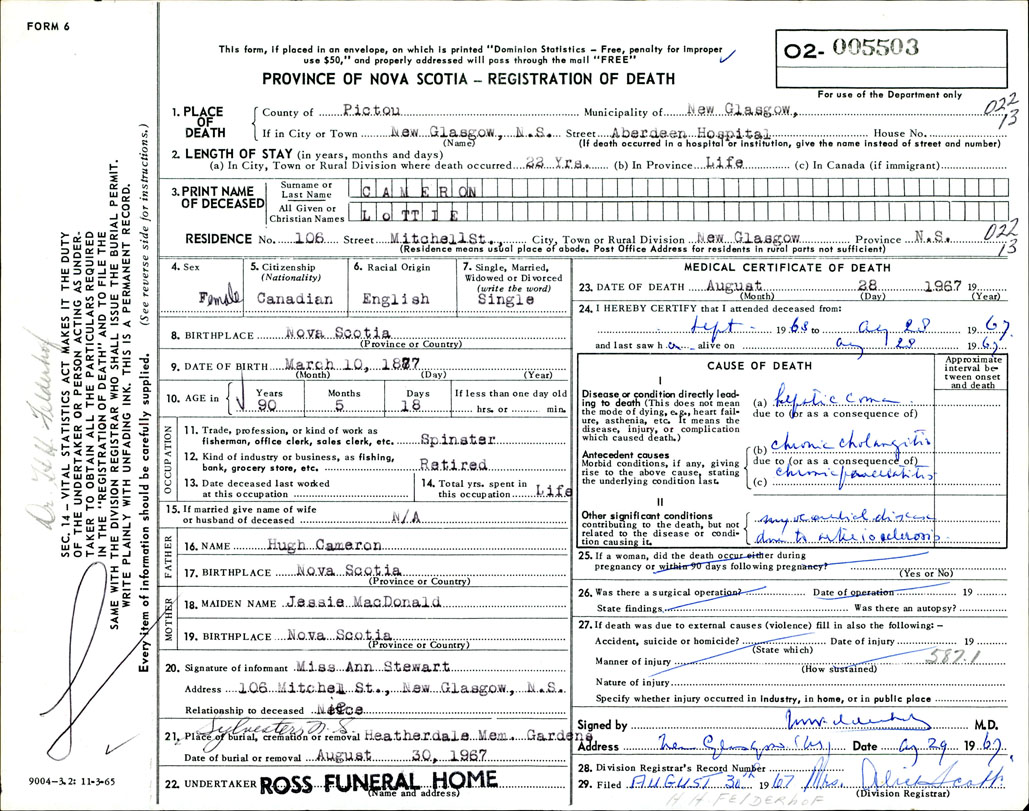 FORM 6
This form, if placed in an envelope, on which is printed "Dominion Statistics – Free, penalty for improper
use $50," and properly addressed will pass through the mail "FREE"
PROVINCE OF NOVA SCOTIA – REGISTRATION OF DEATH
O2- 005503
For use of the Department only
1. PLACE OF DEATH
County of Pictou Municipality of New Glasgow, 022
If in City or Town New Glasgow, N.S. Street Aberdeen Hospital House No. 13
(Name) (If death occurred in a hospital or institution, give the name instead of street and number)
2. LENGTH OF STAY (in years, months and days)
(a) In City, Town or Rural Division where death occurred 22 Yrs. (b) In Province Life (c) In Canada (if immigrant)
3. PRINT NAME OF DECEASED
Surname or Last Name CAMERON
All Given or Christian Names LOTTIE
RESIDENCE No. 106 Street Mitchell St., City, Town or Rural Division New Glasgow Province N.S. 022
(Residence means usual place of abode. Post Office Address for residents in rural parts not sufficient) 13
4. Sex Female
5. Citizenship (Nationality) Canadian
6. Racial Origin English
7. Single, Married, Widowed or Divorced (write the word) Single
8. BIRTHPLACE Nova Scotia
(Province or Country)
9. DATE OF BIRTH March 10, 1877
(Month) (Day) (Year)
10. AGE in Years Months Days If less than one day old
90 5 18 hrs. or min.
OCCUPATION
11. Trade, profession, or kind of work as
fisherman, office clerk, sales clerk, etc. Spinster
12. Kind of industry or business, as fishing,
bank, grocery store, etc. Retired
13. Date deceased last worked
at this occupation
14. Total yrs. spent in
this occupation Life
15. If married give name of wife
or husband of deceased N/A
FATHER
16. NAME Hugh Cameron
17. BIRTHPLACE Nova Scotia
(Province or Country)
MOTHER
18. MAIDEN NAME Jessie MacDonald
19. BIRTHPLACE Nova Scotia
(Province or Country)
20. Signature of informant Miss Ann Stewart
Address 106 Mitchel St., New Glasgow, N.S.
Relationship to deceased Niece
Sylvester, N.S.
21. Place of burial, cremation or removal Heatherdale Mem. Gardens
Date of burial or removal August 30, 1967
22. UNDERTAKER ROSS FUNERAL HOME
(Name and address)
MEDICAL CERTIFICATE OF DEATH
23. DATE OF DEATH August 28 1967 19
(Month) (Day) (Year)
24. I HEREBY CERTIFY that I attended deceased from:
Sept - 1963 to Aug 28 1967
and last saw h er alive on Aug 28 1967
CAUSE OF DEATH
Approximate interval between onset and death
I
Disease or condition directly leading
to death (This does not mean
the mode of dying, e.g., heart failure,
asthenia, etc. It means the
disease, injury, or complication
which caused death.)
(a) hepatic coma
due to (or as a consequence of)
Antecedent causes
Morbid conditions, if any, giving
rise to the above cause, stating
the underlying condition last.
(b) chronic cholangitis
due to (or as a consequence of)
(c) chronic pancreatitis
II
Other significant conditions
contributing to the death, but not
related to the disease or condition
causing it.
myocardial disease
due to arteriosclerosis
25. If a woman, did the death occur either during
pregnancy or within 90 days following pregnancy?
(Yes or No)
26. Was there a surgical operation? Date of operation 19
State findings Was there an autopsy?
27. If death was due to external causes (violence) fill in also the following: –
Accident, suicide or homicide? Date of injury 19
(State which)
Manner of injury 587.1
(How sustained)
Nature of injury
Specify whether injury occurred in industry, in home, or in public place
Signed by M.D.
Address New Glasgow (NS) Date Aug 29 1967
28. Division Registrar's Record Number
29. Filed AUGUST 30th 1967 Mrs. Alice Scott
(Division Registrar)
H H FELDERHOF
SEC. 14 – VITAL STATISTICS ACT MAKES IT THE DUTY
OF THE UNDERTAKER OR PERSON ACTING AS UNDER-
TAKER TO OBTAIN ALL THE PARTICULARS REQUIRED
IN THE "REGISTRATION OF DEATH" AND TO FILE THE
SAME WITH THE DIVISION REGISTRAR WHO SHALL ISSUE THE BURIAL PERMIT.
WRITE PLAINLY WITH UNFADING INK. THIS IS A PERMANENT RECORD.
Every item of information should be carefully supplied. (See reverse side for instructions.)
Dr. H H Felderhof
9004–3.2: 11-3-65